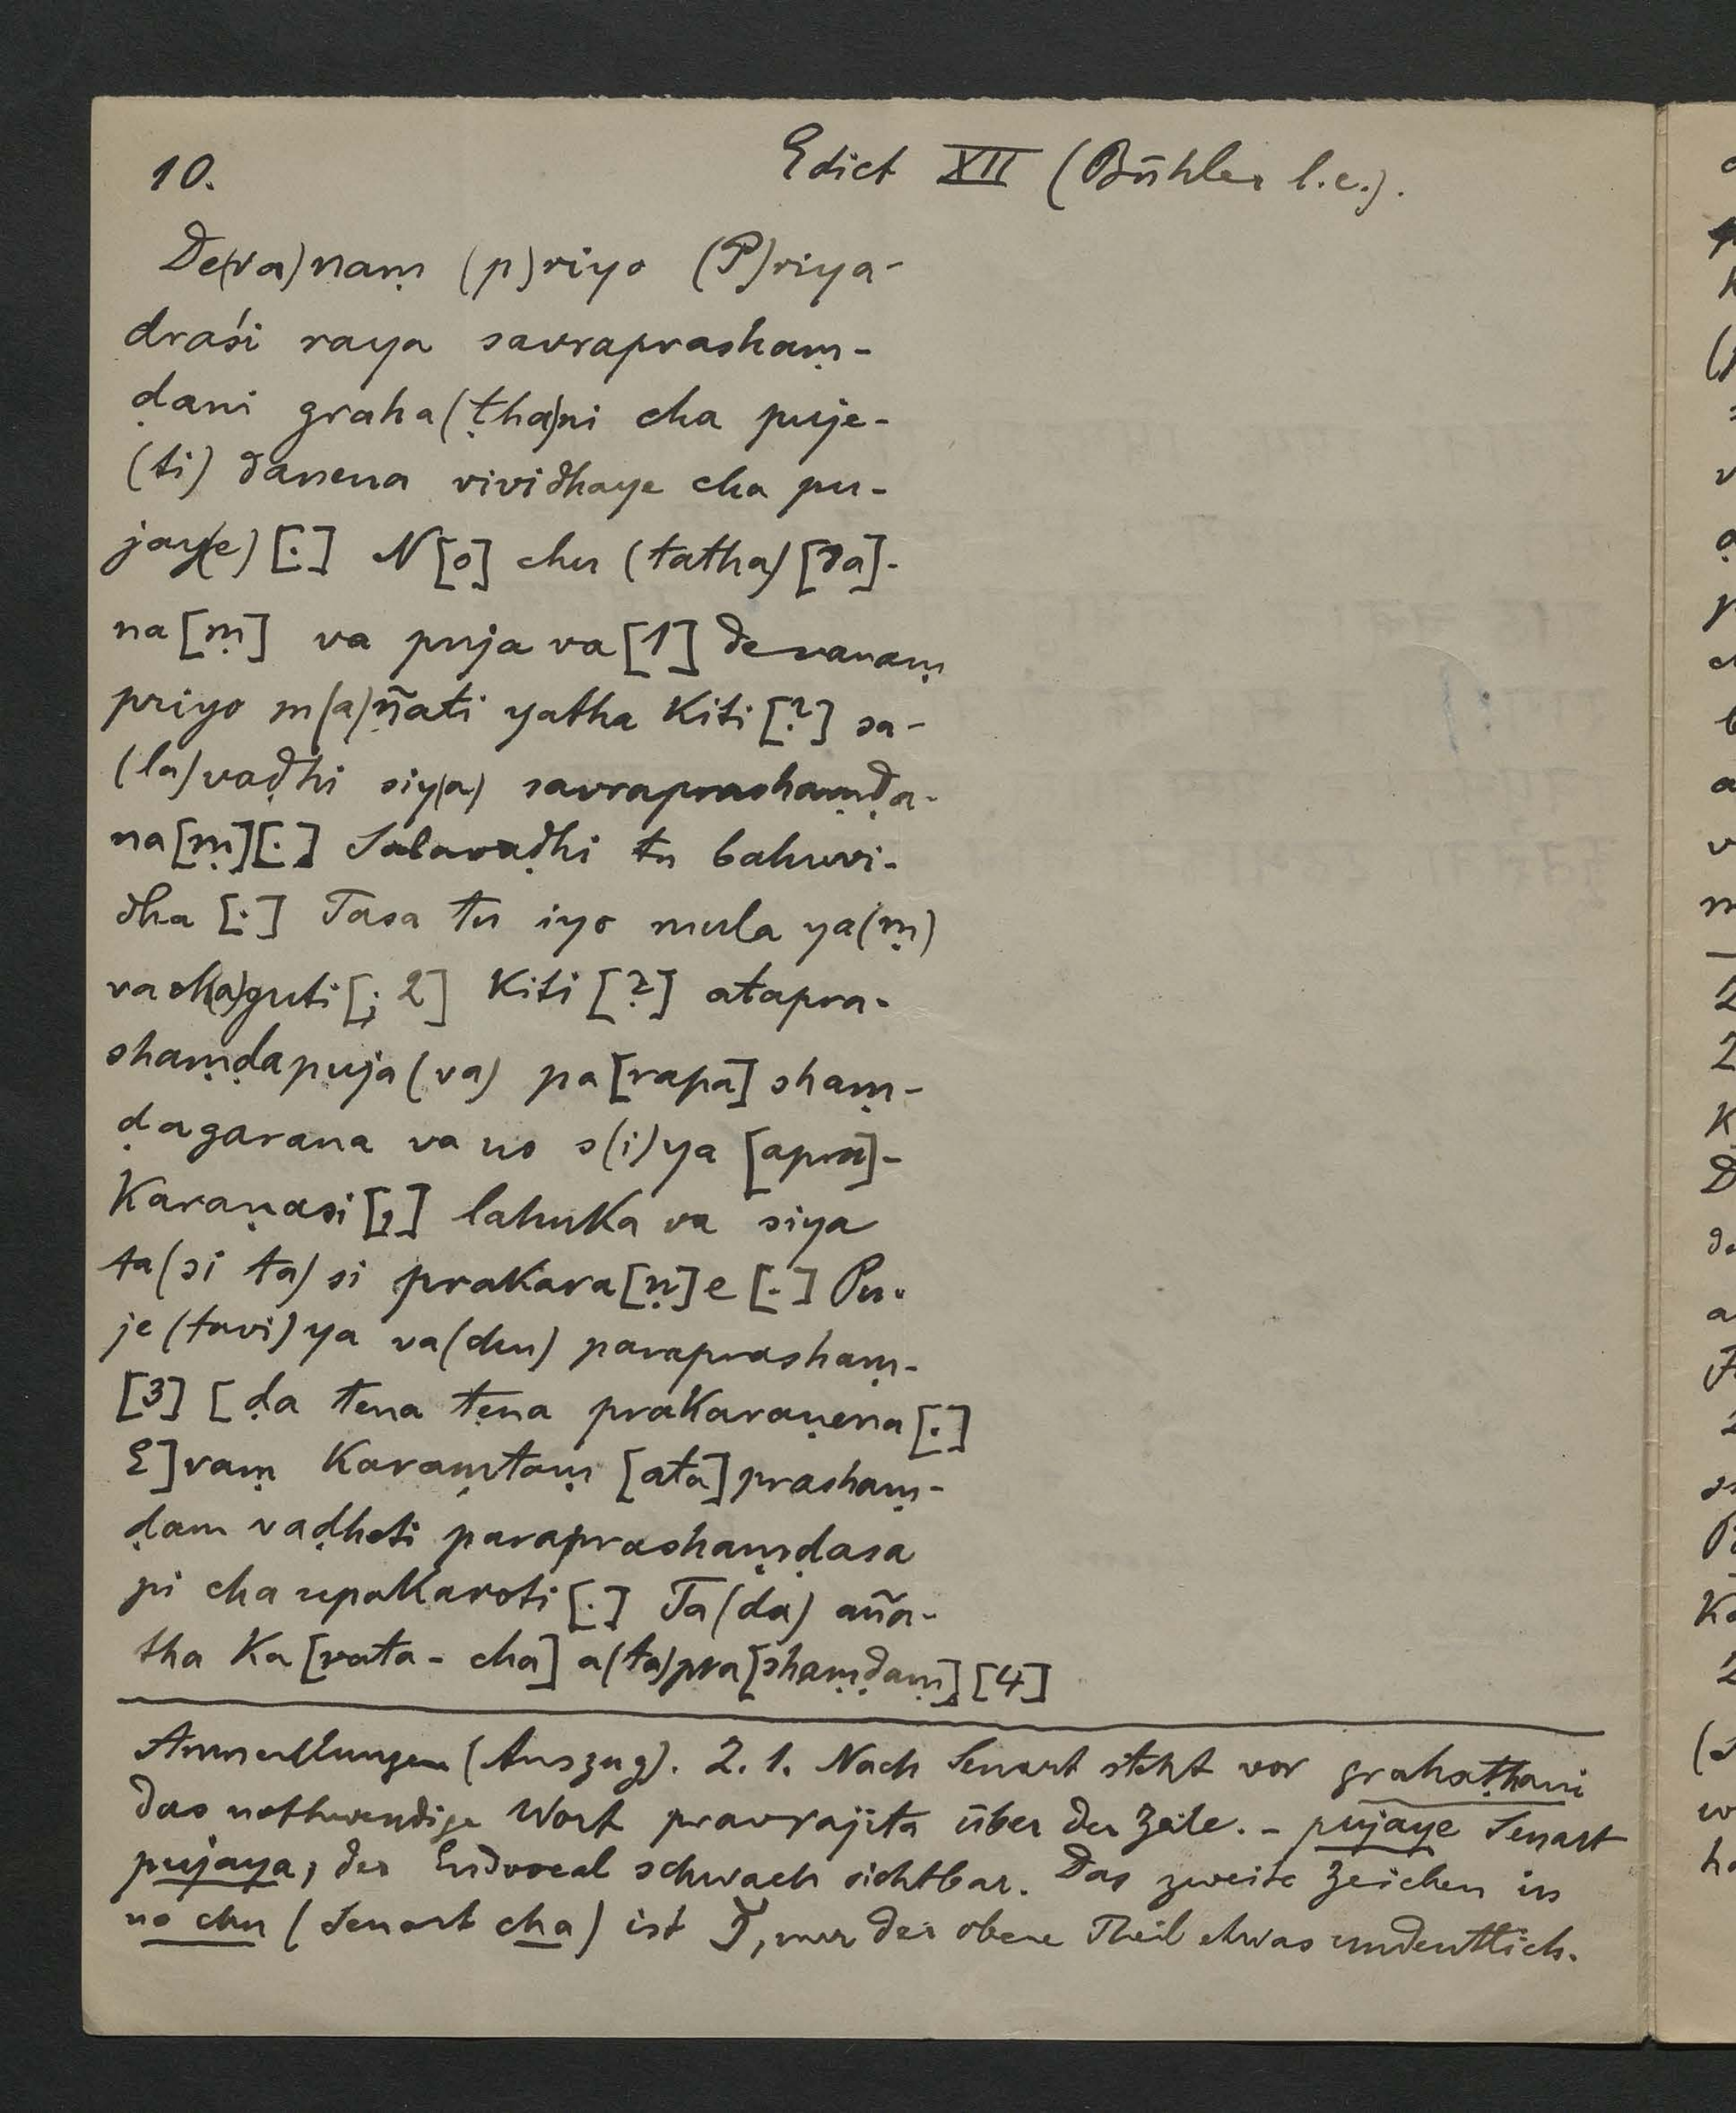 10.
Edict XII (Bühler l.c.).
De(va)naṃ (p)riyo (P)riya-
draśi raya savraprashaṃ-
ḍani graha(ṭha)ni cha puje-
(ti) danena vividhaye cha pu-
jay(e) [.] N[o] chu (tatha) [da]-
na[ṃ] va puja va [1] devanaṃ
priyo m(a)ñati yatha kiti [?] sa-
(la)vaḍhi siy(a) savraprashaṃḍa-
na[ṃ][.] Salavaḍhi tu bahuvi-
dha [.] Tasa tu iyo mula ya(ṃ)
vach(a)guti [; 2] kiti [?] atapra-
shaṃḍapuja (va) pa[rapa]shaṃ-
ḍagarana va no s(i)ya [apra]-
karaṇasi [,] lahuka va siya
ta(si ta)si prakara[ṇ]e [.] Pu-
je(tavi)ya va(chu) paraprashaṃ-
[3] [ḍa tena tena prakaraṇena [.]
E]vaṃ karaṃtaṃ [ata]prashaṃ-
ḍam vaḍheti paraprashaṃḍasa
pi cha upakaroti [.] Ta(da) aña-
tha ka[rata- cha] a(ta)pra[shaṃḍaṃ] [4]
Anmerkungen (Auszug). Z. 1. Nach Senart steht vor grahaṭhani
das nothwendige Wort pravrajita über der Zeile. - pujaye Senart
pujaya, der Endvocal schwach sichtbar. Das zweite Zeichen in
no chu (Senart cha) ist , nur der obere Theil etwas undeutlich.